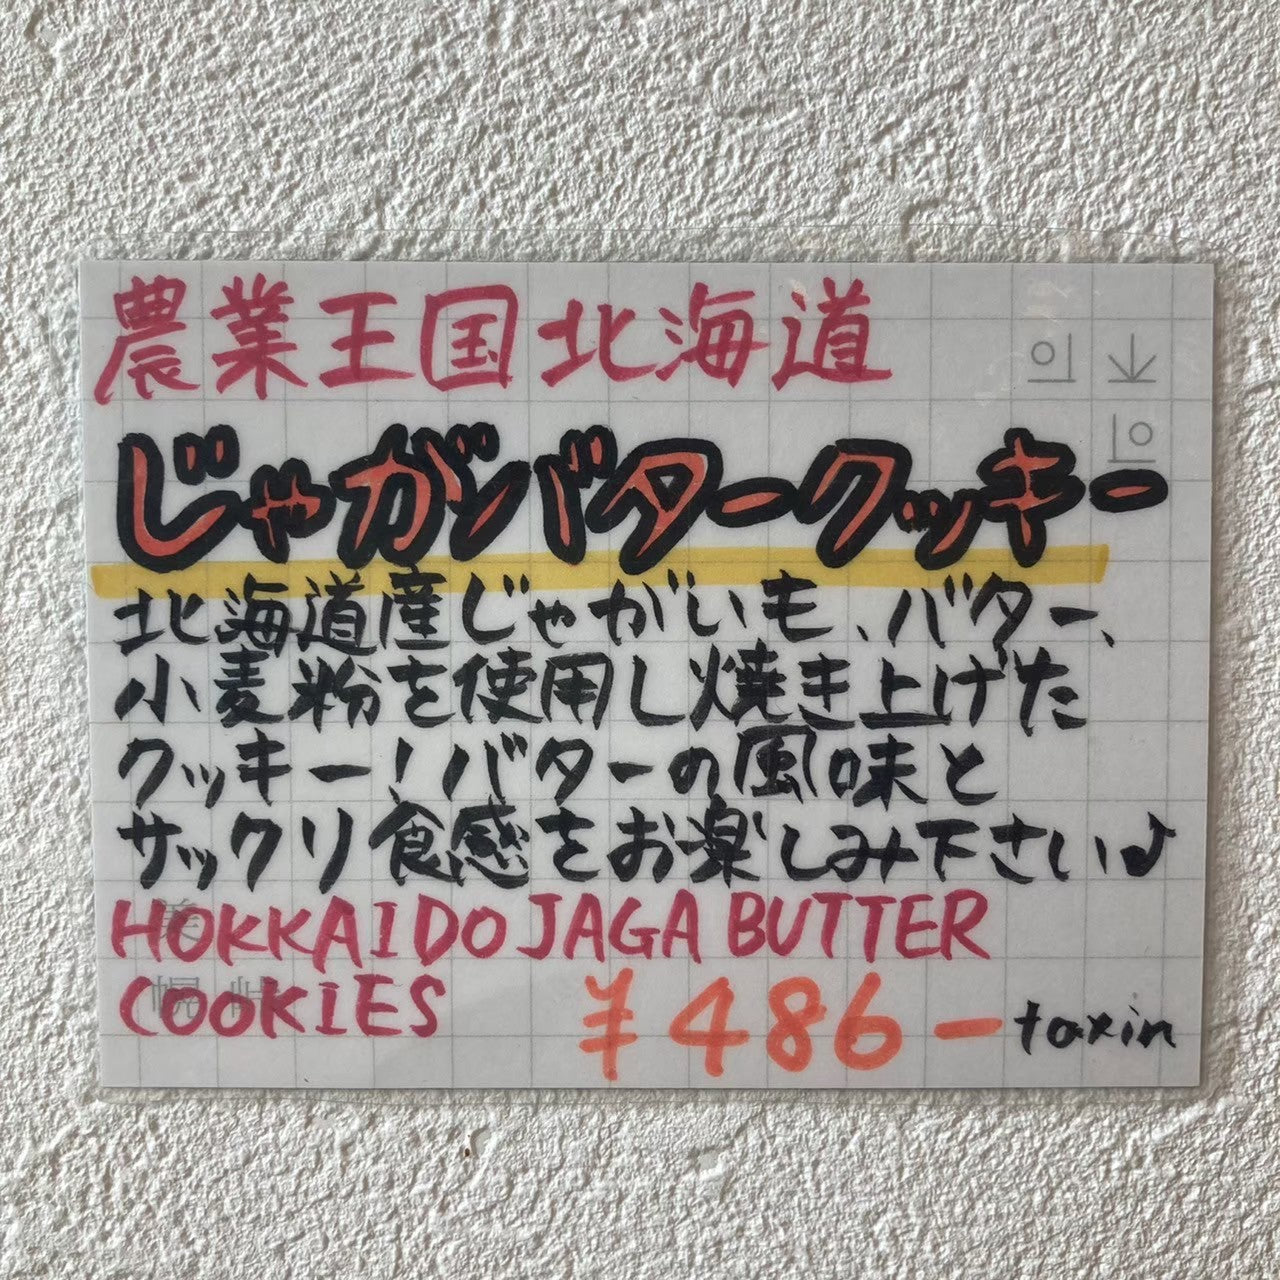 農業王国北海道
じゃがバタークッキー
北海道産じゃがいも、バター、
小麦粉を使用し焼き上げた
クッキー!バターの風味と
サックリ食感をお楽しみ下さい♪
HOKKAIDO JAGA BUTTER
COOKIES
¥486- taxin